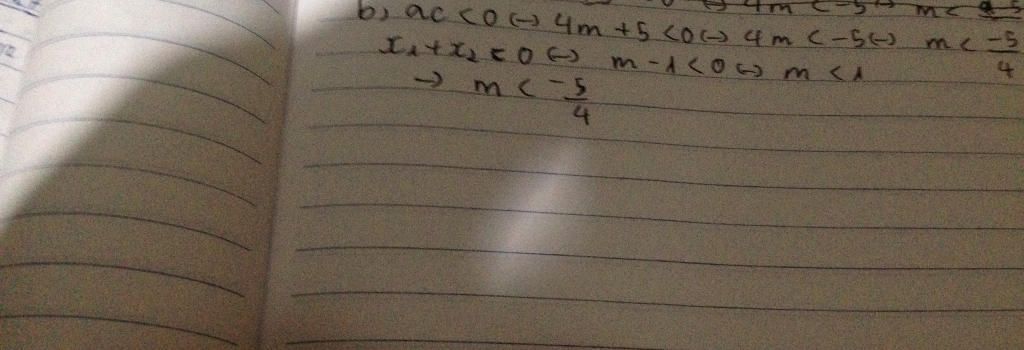 4m < -5 ↔ m < -5
b, ac < 0 ↔ 4m + 5 < 0 ↔ 4m < -5 ↔ m < -5/4
x₁ + x₂ < 0 ↔ m - 1 < 0 ↔ m < 1
→ m < -5/4